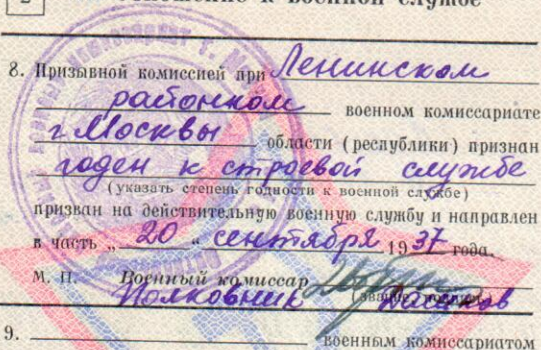 2
отношение к военной службе
8. Призывной комиссией при Ленинском
районном военном комиссариате
г. Москвы области (республики) признан
годен к строевой службе
(указать степень годности к военной службе)
призван на действительную военную службу и направлен
в часть „20“ сентября 1937 года.
М. П. Военный комиссар
Полковник
9. военным комиссариатом